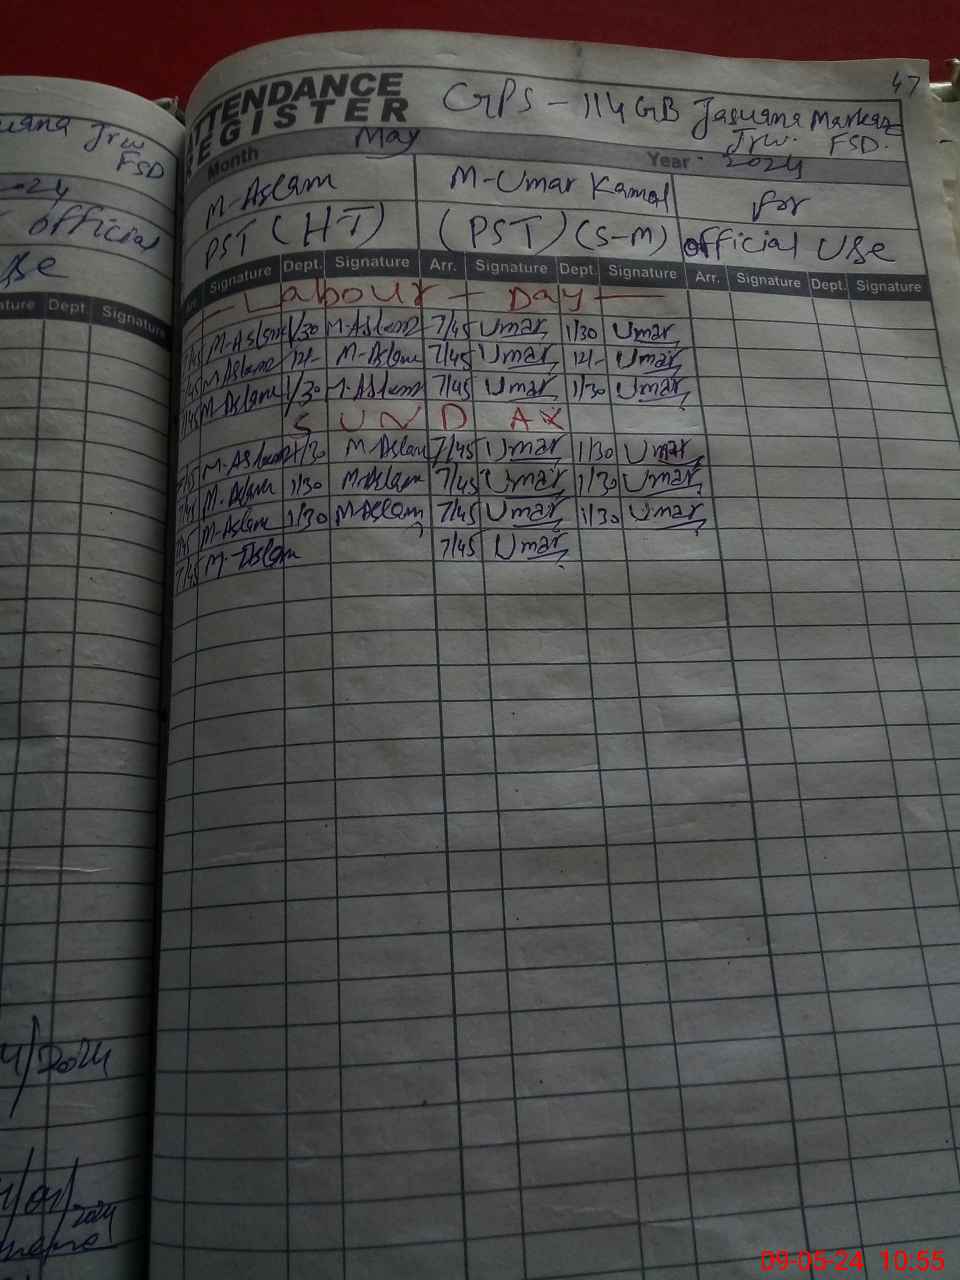 47
ATTENDANCE REGISTER
GPS - 114 GB Jasuana Markaz
Jrw. FSD.
Month May Year 2024
M-Aslam M-Umar Kamal For
PST (HT) (PST) (S-M) official Use
Arr. Signature Dept. Signature Arr. Signature Dept. Signature Arr. Signature Dept. Signature
Labour - Day
7/45 M-Aslam 1/30 M-Aslam 7/45 Umar 1/30 Umar
7/45 M-Aslam 12/- M-Aslam 7/45 Umar 12/- Umar
7/45 M-Aslam 1/30 M-Aslam 7/45 Umar 1/30 Umar
SUNDAY
7/45 M-Aslam 1/30 M-Aslam 7/45 Umar 1/30 Umar
7/45 M-Aslam 1/30 M-Aslam 7/45 Umar 1/30 Umar
7/45 M-Aslam 1/30 M-Aslam 7/45 Umar 1/30 Umar
7/45 M-Aslam 7/45 Umar
Jrw
FSD
official
Use
Dept. Signature
/2024
2024
09-05-24 10:55